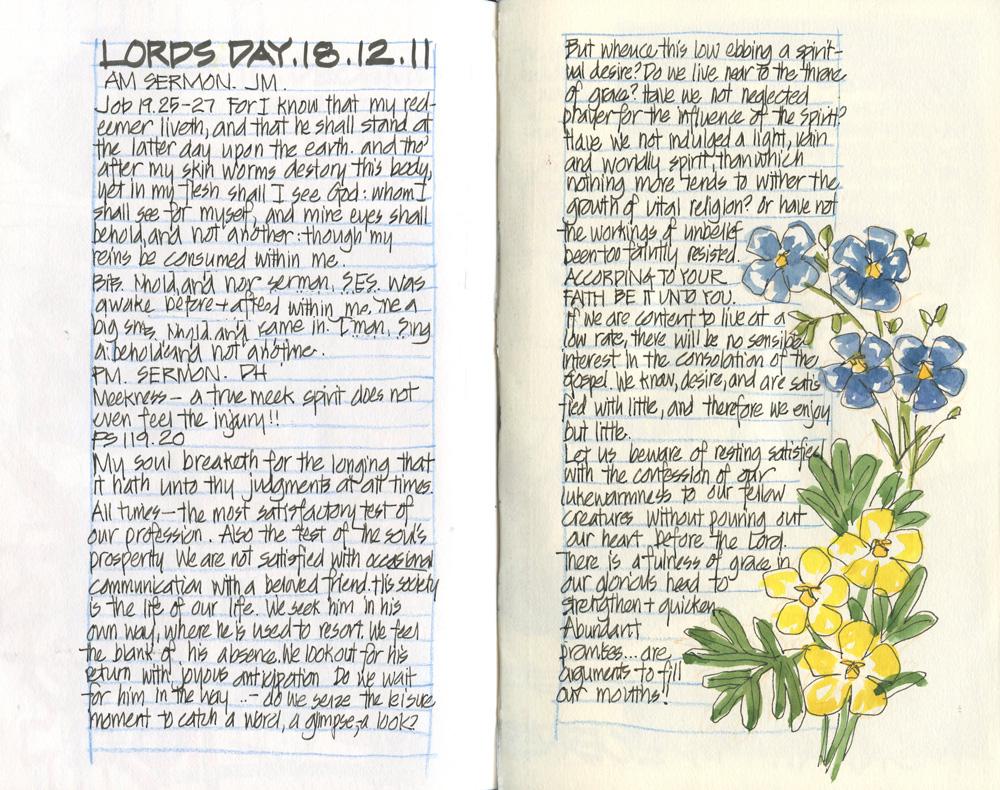 LORDS DAY.18.12.11
AM SERMON. JM.
Job 19.25-27 For I know that my red-
eemer liveth, and that he shall stand at
the latter day upon the earth. and tho'
after my skin worms destory this body,
yet in my flesh shall I see God: whom I
shall see for myself, and mine eyes shall
behold, and not another: though my
reins be consumed within me.
and nor sermon, S.E.S. was
awake before + within me, me a
big came in. Sing
a behold and not
PM. SERMON. DH
Meekness - a true meek spirit does not
even feel the injury!!
PS 119.20
My soul breaketh for the longing that
it hath unto thy judgments at all times.
All times - the most satisfactory test of
our profession. Also the test of the soul's
prosperity. We are not satisfied with occasional
communication with a beloved friend. His society
is the life of our life. We seek him in his
own way, where he is used to resort. We feel
the blank of his absence. We look out for his
return with joyous anticipation Do we wait
for him in the way ..- do we seize the leisure
moment to catch a word, a glimpse, a look?
But whence this low ebbing a spirit-
ual desire? Do we live near to the throne
of grace? Have we not neglected
prayer for the influence of the spirit?
Have we not indulged a light, vain
and worldly spirit, than which
nothing more tends to wither the
growth of vital religion? Or have not
the workings of unbelief
been too faintly resisted.
ACCORDING TO YOUR
FAITH BE IT UNTO YOU.
If we are content to live at a
low rate, there will be no sensible
interest in the consolation of the
Gospel. We know, desire, and are satis
fied with little, and therefore we enjoy
but little.
Let us beware of resting satisfied
with the confession of our
lukewarmness to our fellow
creatures without pouring out
our heart before the Lord.
There is a fulness of grace in
our glorious head to
strengthen + quicken
Abundant
promises... are
arguments to fill
our mouths!!